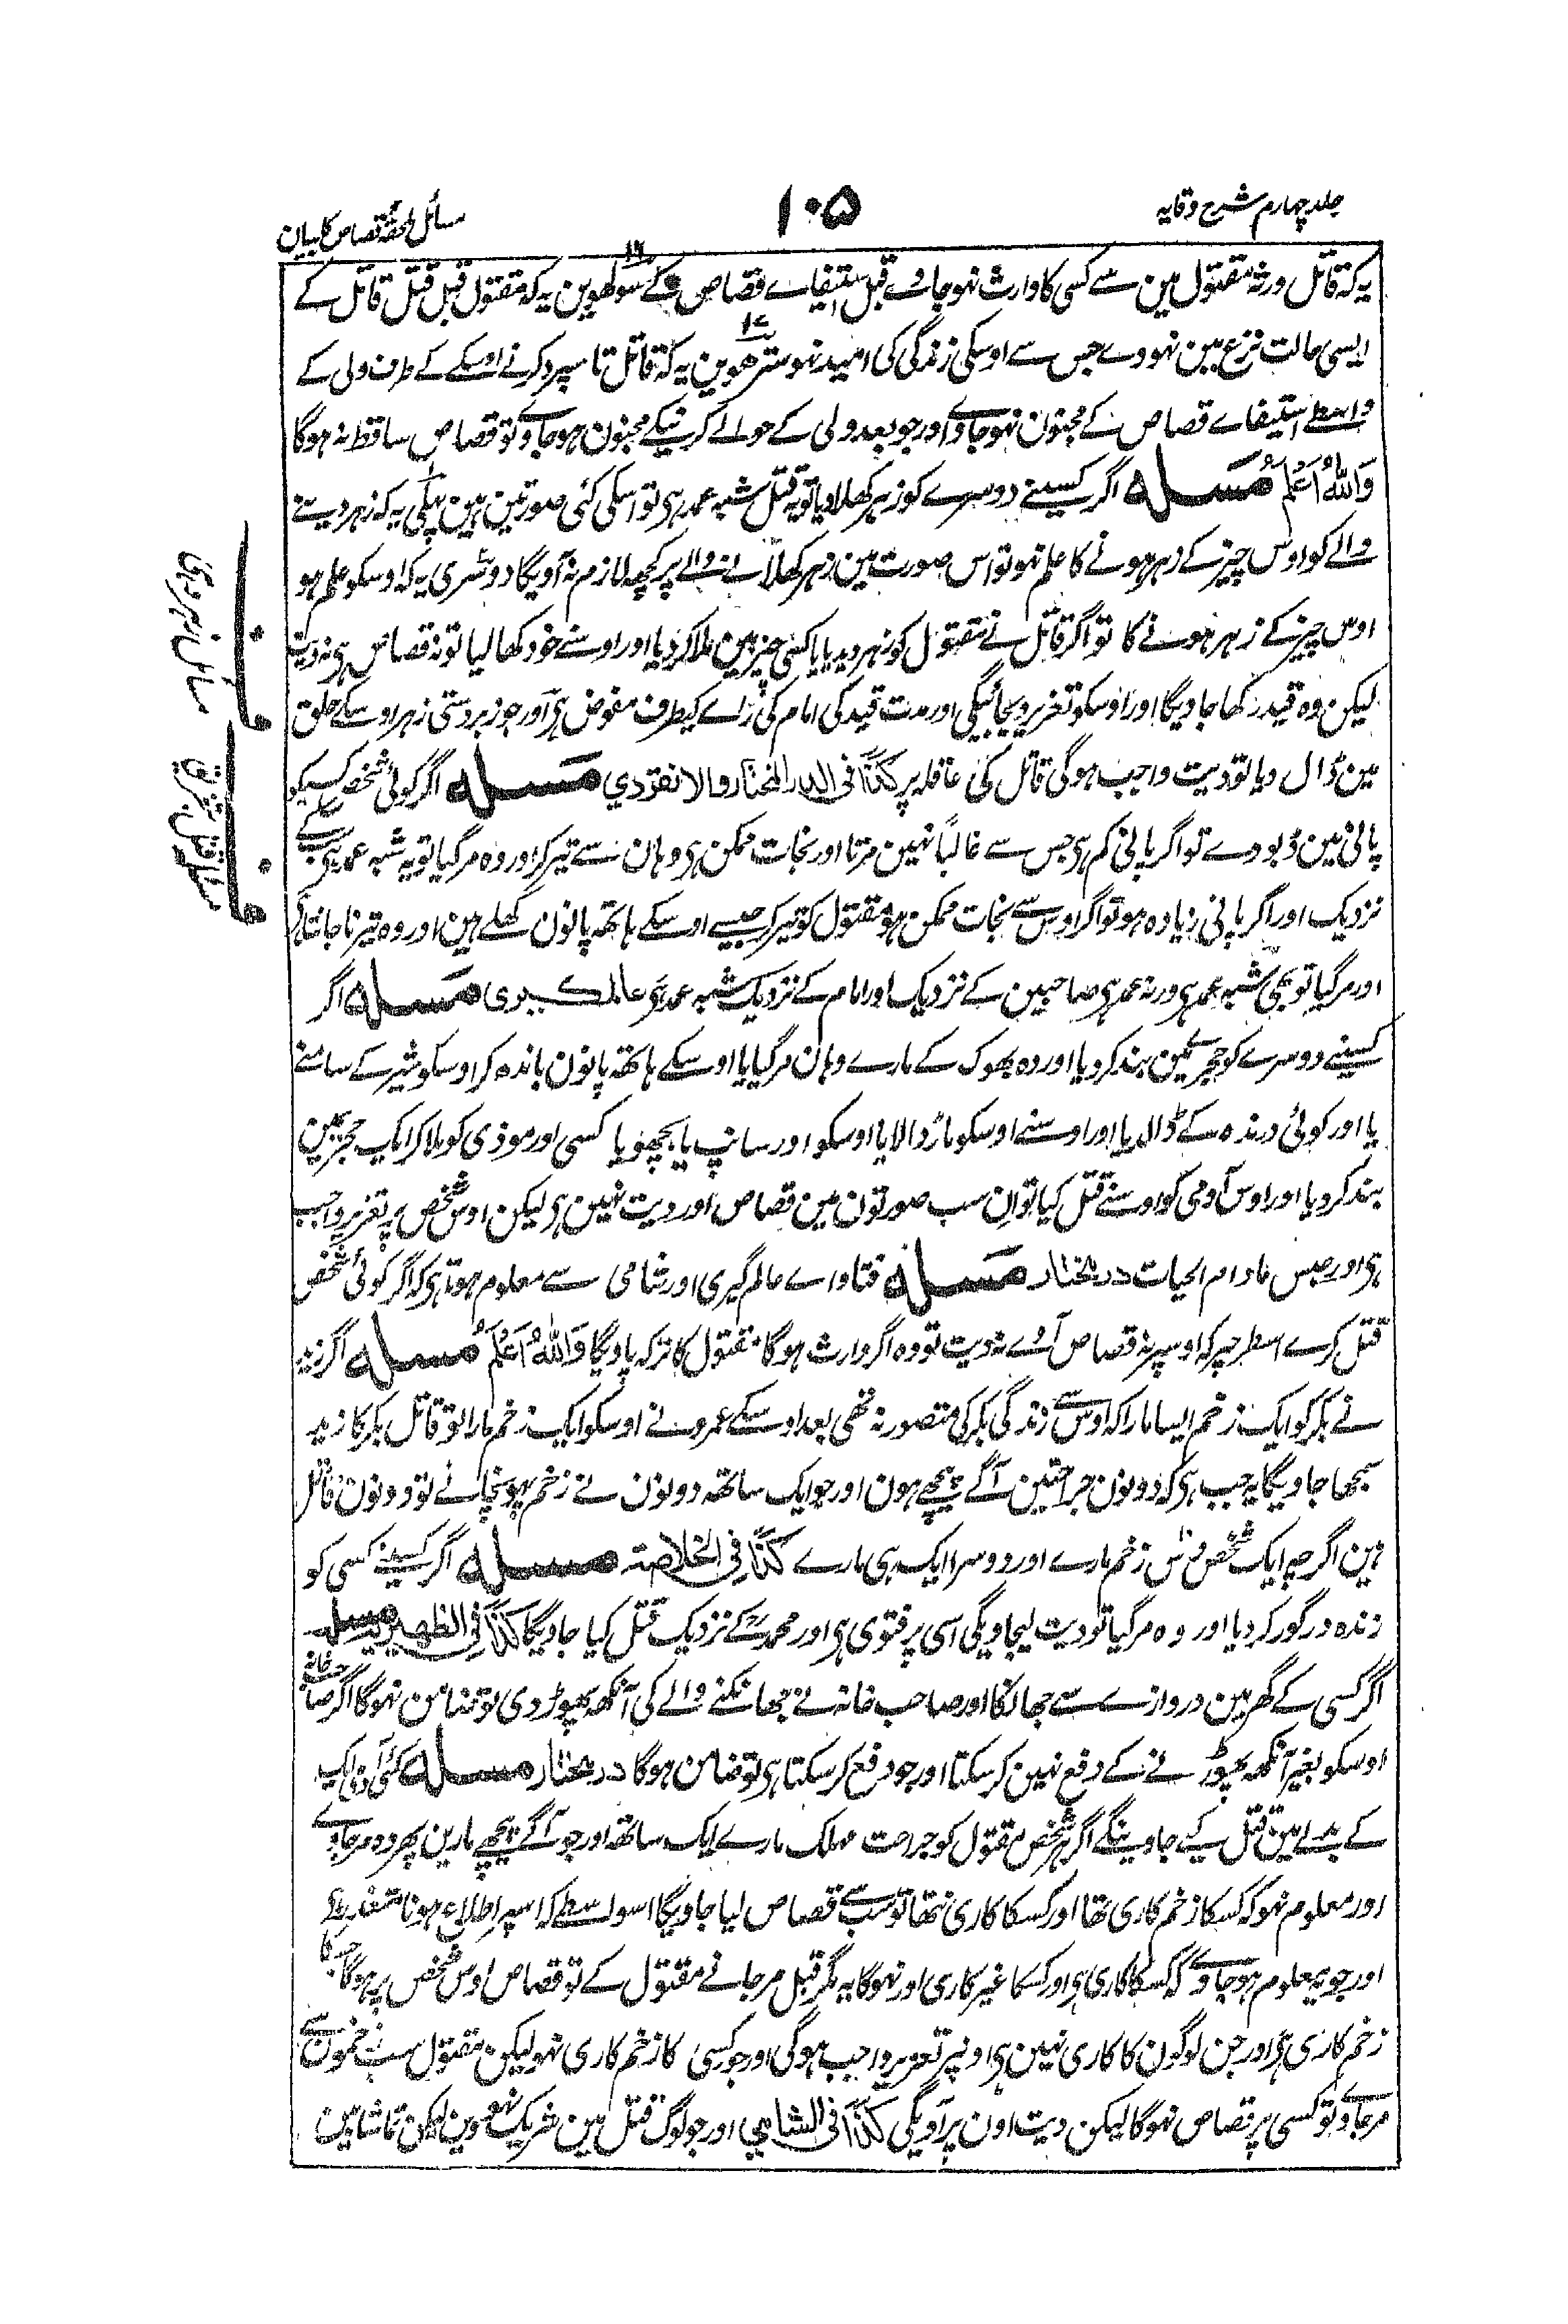 جلد چہارم شرح وقایہ
۱۰۵
مسائل ملحقہ قصاص کا بیان
یہ کہ قاتل ورثہ مقتول مین سے کسی کا وارث نہو جاوے قبل استیفاے قصاص کے سولھوین یہ کہ مقتول قبل قتل قاتل کے
ایسی حالت نزع مین نہووے جس سے اوسکی زندگی کی امید نہو سترھوین یہ کہ قاتل تا سپرد کرنے اوسکے کے طرف ولی کے
واسطے استیفاے قصاص کے مجنون نہو جاوے اور جو بعد ولی کے حوالے کرنیکے مجنون ہو جاوے تو قصاص ساقط نہ ہوگا
وَاللہُ اَعْلَمُ مسئلہ اگر کسینے دوسرے کو زہر کھلا دیا تو یہ قتل شبہ عمد ہی تو اسکی کئی صورتین ہین پہلی یہ کہ زہر دینے
والے کو اوس چیز کے زہر ہونے کا علم نہو تو اس صورت مین زہر کھلانے والے پر کچھ لازم نہ آویگا دوسری یہ کہ اوسکو علم ہو
اوس چیز کے زہر ہونے کا تو اگر قاتل نے مقتول کو زہر دیدیا یا کسی چیز مین ملا کر دیا اور اوسنے خود کھا لیا تو نہ قصاص ہی نہ دیت
لیکن وہ قید رکھا جاویگا اور اوسکو تعزیر دیجائیگی اور مدت قید کی امام کی راے کیطرف مفوض ہی اور جو زبردستی زہر اوسکے حلق
مین ڈال دیا تو دیت واجب ہوگی قاتل کی عاقلہ پر کَذَا فی الدر المختار والانقروی مسئلہ اگر کوئی شخص کسیکو
پانی مین ڈبووے تو اگر پانی کم ہی جس سے غالباً نہین مرتا اور نجات ممکن ہی وہان سے تیر کر اور وہ مر گیا تو یہ شبہ عمد ہی سبکے
نزدیک اور اگر پانی زیادہ ہو تو اگر اوس سے نجات ممکن ہو مقتول کو تیر کر جیسے اوسکے ہاتھ پانون کھلے ہین اور وہ تیرنا جانتا ہی
اور مر گیا تو بھی شبہ عمد ہی ورنہ عمد ہی صاحبین کے نزدیک اور امام کے نزدیک شبہ عمد ہی عالمگیری مسئلہ اگر
کسینے دوسرے کو حجرے مین بند کر دیا اور وہ بھوک کے مارے وہان مر گیا یا اوسکے ہاتھ پانون باندھ کر اوسکو شیر کے سامنے
یا اور کوئی درندہ کے ڈالدیا اور اوسنے اوسکو مار ڈالا یا اوسکو اور سانپ یا بچھو یا کسی اور موذی کو ملا کر ایک حجرے مین
بند کر دیا اور اوس آدمی کو اوسنے قتل کیا تو ان سب صورتون مین قصاص اور دیت نہین ہی لیکن اوس شخص پر تعزیر واجب
ہی اور حبس مادام الحیات در مختار مسئلہ فتاواے عالم گیری اور شامی سے معلوم ہوتا ہی کہ اگر کوئی شخص
قتل کرے اسطرح پر کہ اوسپر نہ قصاص آوے نہ دیت تو وہ اگر وارث ہوگا مقتول کا ترکہ پاویگا وَاللہُ اَعْلَمُ مسئلہ اگر زید
نے بکر کو ایک زخم ایسا مارا کہ اوس سے زندگی بکر کی متصور نہ تھی بعد اوسکے عمرو نے اوسکو ایک زخم مارا تو قاتل بکر کا زید
سمجھا جاویگا یہ جب ہی کہ دونون جراحتین آگے پیچھے ہون اور جو ایک ساتھ دونون نے زخم پہونچائے تو دونون قاتل
ہین اگرچہ ایک شخص دس زخم مارے اور دوسرا ایک ہی مارے کَذَا فی الخلاصة مسئلہ اگر کسینے کسی کو
زندہ درگور کر دیا اور وہ مر گیا تو دیت لیجاویگی اسی پر فتوی ہی اور محمد رح کے نزدیک قتل کیا جاویگا کَذَا فی الظھیریة مسئلہ
اگر کسی کے گھر مین دروازے سے جھانکا اور صاحب خانہ نے جھانکنے والے کی آنکھ پھوڑ دی تو ضامن نہوگا اگر صاحب خانہ
اوسکو بغیر آنکھ پھوڑنے کے دفع نہین کر سکتا اور جو دفع کر سکتا ہی تو ضامن ہوگا در مختار مسئلہ کئی آدمی ایک
کے بدلے مین قتل کیے جاوینگے اگر ہر شخص مقتول کو جراحت مہلک مارے ایک ساتھ اور جو آگے پیچھے مارین پھر وہ مر جاوے
اور معلوم نہو کہ کسکا زخم کاری تھا اور کسکا کاری نتھا تو سب سے قصاص لیا جاویگا اسواسطے کہ اسپر اطلاع ہونا متعذر ہی
اور جو یہ معلوم ہو جاوے کہ کسکا کاری ہی اور کسکا غیر کاری اور نہوگا یہ مگر قبل مر جانے مقتول کے تو قصاص اوس شخص پر ہوگا جسکا
زخم کاری ہی اور جن لوگون کا کاری نہین ہی اونپر تعزیر واجب ہوگی اور جو کسی کا زخم کاری نہو لیکن مقتول سب زخمون سے
مر جاوے تو کسی پر قصاص نہوگا لیکن دیت اون پر آویگی کَذَا فی الشامی اور جو لوگ قتل مین شریک نہووین لیکن تماشا بین
مسائل زہر دہی